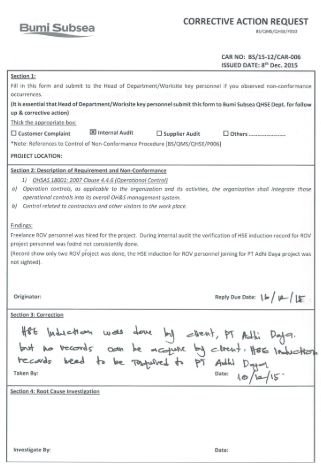 Bumi Subsea
CORRECTIVE ACTION REQUEST
BS/QMS/QHSE/F010
CAR NO: BS/15-12/CAR-006
ISSUED DATE: 8th Dec. 2015
Section 1:
Fill in this form and submit to the Head of Department/Worksite key personnel if you observed non-conformance
occurrences.
(It is essential that Head of Department/Worksite key personnel submit this form to Bumi Subsea QHSE Dept. for follow
up & corrective action)
Thick the appropriate box:
☐ Customer Complaint ☒ Internal Audit ☐ Supplier Audit ☐ Others ....................
*Note: References to Control of Non-Conformance Procedure [BS/QMS/QHSE/P006]
PROJECT LOCATION:
Section 2: Description of Requirement and Non-Conformance
1) OHSAS 18001: 2007 Clause 4.4.6 (Operational Control)
a) Operation controls, as applicable to the organization and its activities, the organization shall integrate those
operational controls into its overall OH&S management system.
b) Control related to contractors and other visitors to the work place.
Findings:
Freelance ROV personnel was hired for the project. During internal audit the verification of HSE induction record for ROV
project personnel was found not consistently done.
(Record show only two ROV project was done, the HSE induction for ROV personnel joining for PT Adhi Daya project was
not sighted).
Originator: Reply Due Date: 16/12/15
Section 3: Correction
HSE Induction was done by client, PT Adhi Daya.
but no records can be acquire by client. HSE Induction
records need to be required to PT Adhi Daya
Taken By: Date: 10/12/15
Section 4: Root Cause Investigation
Investigate By: Date: